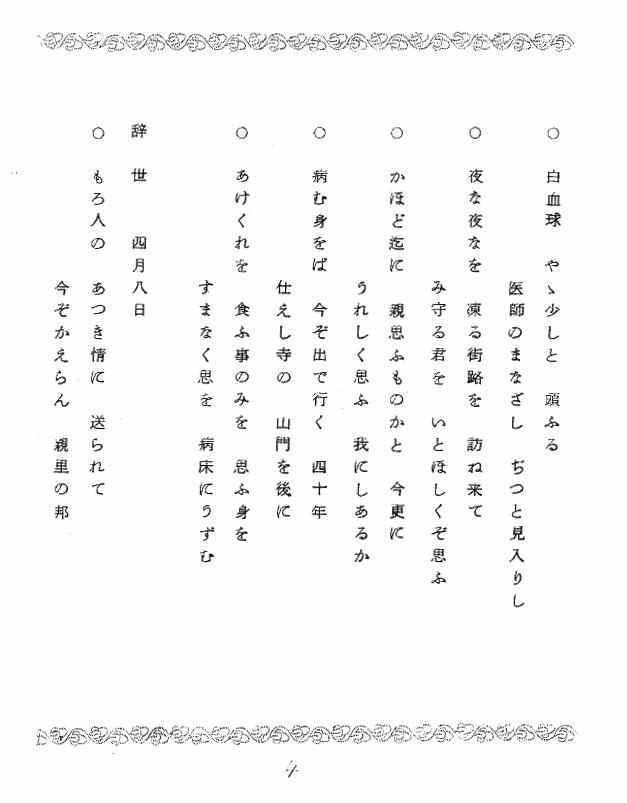 ○ 白血球　やゝ少しと　頭ふる
医師のまなざし　ぢつと見入りし
○ 夜な夜なを　凍る街路を　訪ね来て
み守る君を　いとほしくぞ思ふ
○ かほど迄に　親思ふものかと　今更に
うれしく思ふ　我にしあるか
○ 病む身をば　今ぞ出で行く　四十年
仕えし寺の　山門を後に
○ あけくれを　食ふ事のみを　思ふ身を
すまなく思を　病床にうずむ
辞世　四月八日
○ もろ人の　あつき情に　送られて
今ぞかえらん　親里の邦
4